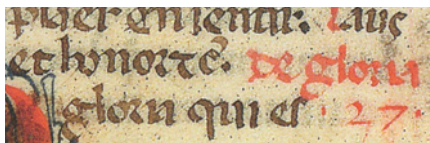 plaer en sentir. Laus
et honor te. de gloria
gloria qui es · 27 ·